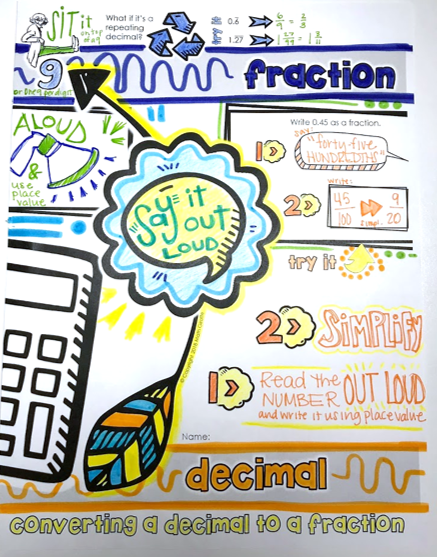 SIT it
on top
of a 9
What if it's a
repeating
decimal?
try it
0.6
6/9 = 2/3
1.27
1 27/99 = 1 3/11
9
or one 9 per digit
fraction
ALOUD
&
use
place
value
Write 0.45 as a fraction.
1
say:
"forty-five
HUNDREDTHS"
2
write:
45/100
9/20
Say it
out
LOUD
try it
2 SIMPLIFY
1 Read the
NUMBER OUT LOUD
and write it using place value
Name:
decimal
converting a decimal to a fraction